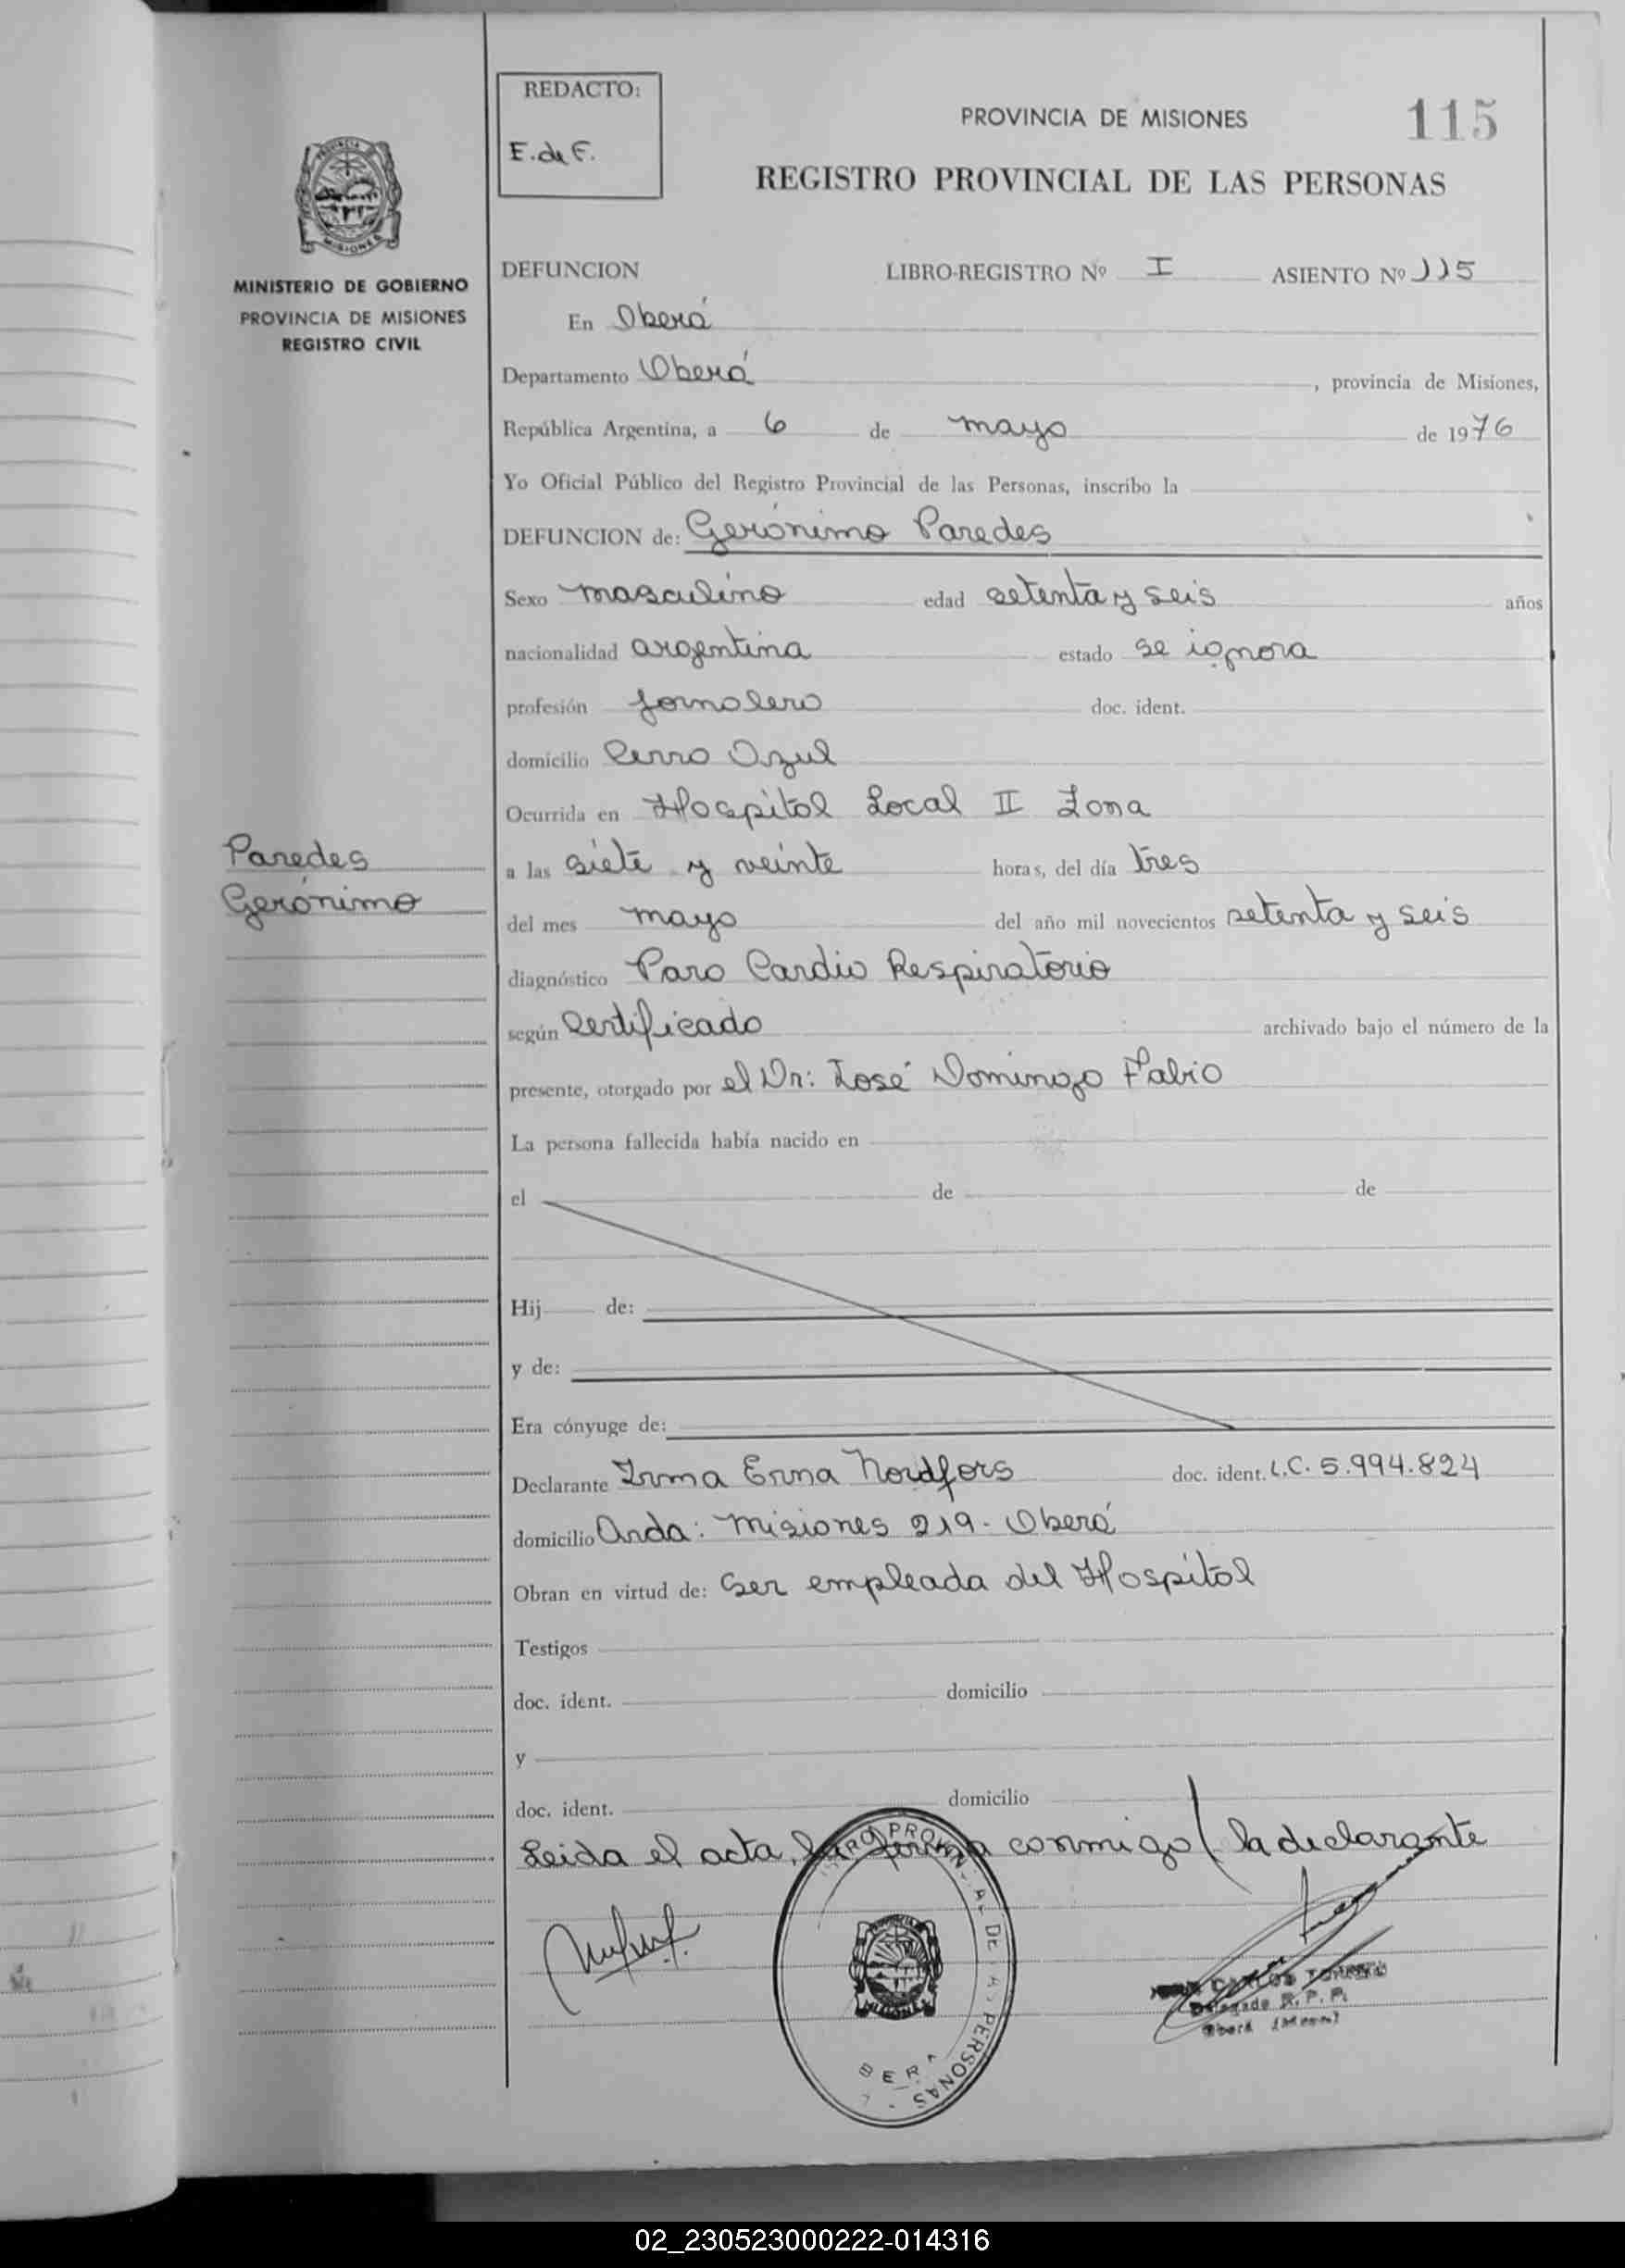 REDACTO:
E. de F.
PROVINCIA DE MISIONES
115
REGISTRO PROVINCIAL DE LAS PERSONAS
MISIONES
MINISTERIO DE GOBIERNO
PROVINCIA DE MISIONES
REGISTRO CIVIL
DEFUNCION LIBRO-REGISTRO Nº I ASIENTO Nº 115
En Oberá
Departamento Oberá, provincia de Misiones,
República Argentina, a 6 de mayo de 1976
Yo Oficial Público del Registro Provincial de las Personas, inscribo la
DEFUNCION de: Gerónimo Paredes
Sexo masculino edad setenta y seis años
nacionalidad argentina estado se ignora
profesión Jornalero doc. ident.
domicilio Cerro Azul
Ocurrida en Hospital Local II Zona
Paredes
Gerónimo
a las siete y veinte horas, del día tres
del mes mayo del año mil novecientos setenta y seis
diagnóstico Paro Cardio Respiratorio
según Certificado archivado bajo el número de la
presente, otorgado por el Dr: José Domingo Fabio
La persona fallecida había nacido en
el de de
Hij de:
y de:
Era cónyuge de:
Declarante Irma Erna Nordfors doc. ident. L.C. 5.994.824
domicilio Avda: Misiones 219 - Oberá
Obran en virtud de: Ser empleada del Hospital
Testigos
doc. ident. domicilio
y
doc. ident. domicilio
Leida el acta, la firma conmigo la declarante
MISIONES
PERSONAS
CARLOS
Delegado R. P. P.
Oberá
02_230523000222-014316